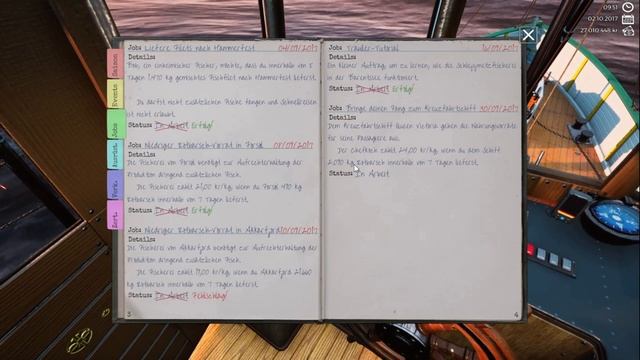 09:51
02.10.2017
27 010 448 kr
Saison
Events
Jobs
Ausrüst.
Perk.
Zert.
Job: Liefere Filets nach Hammerfest 04/09/2017
Details:
Bob, ein einheimischer Fischer, möchte, dass du innerhalb von 5
Tagen 1,470 kg gemischtes Fischfilet nach Hammerfest lieferst.
Du darfst nicht zusätzliche Fische fangen und Schnellreisen
ist nicht erlaubt.
Status: In Arbeit Erfolg!
Job: Niedriger Rotbarsch-Vorrat in Forsøl 07/09/2017
Details:
Die Fischerei von Forsøl benötigt zur Aufrechterhaltung der
Produktion dringend zusätzlichen Fisch.
Die Fischerei zahlt 21,00 kr/kg, wenn du Forsøl 490 kg
Rotbarsch innerhalb von 7 Tagen lieferst.
Status: In Arbeit Erfolg!
Job: Niedriger Rotbarsch-Vorrat in Akkarfjord 10/09/2017
Details:
Die Fischerei von Akkarfjord benötigt zur Aufrechterhaltung der
Produktion dringend zusätzlichen Fisch.
Die Fischerei zahlt 19,00 kr/kg, wenn du Akkarfjord
kg Rotbarsch innerhalb von 7 Tagen lieferst.
Status: In Arbeit Fehlschlag!
3
Job: Trawler-Tutorial
Details:
Ein kleiner Auftrag, um zu lernen, wie die Schleppnetzfischerei
in der Barentssee funktioniert.
Status: In Arbeit Erfolg!
Job: Bringe deinen Fang zum Kreuzfahrtschiff 30/09/2017
Details:
Dem Kreuzfahrtschiff Queen Victoria gehen die Nahrungsvorräte
für seine Passagiere aus.
Der Chefkoch zahlt 24,00 kr/kg, wenn du dem Schiff
2,090 kg Rotbarsch innerhalb von 7 Tagen lieferst.
Status: In Arbeit
4